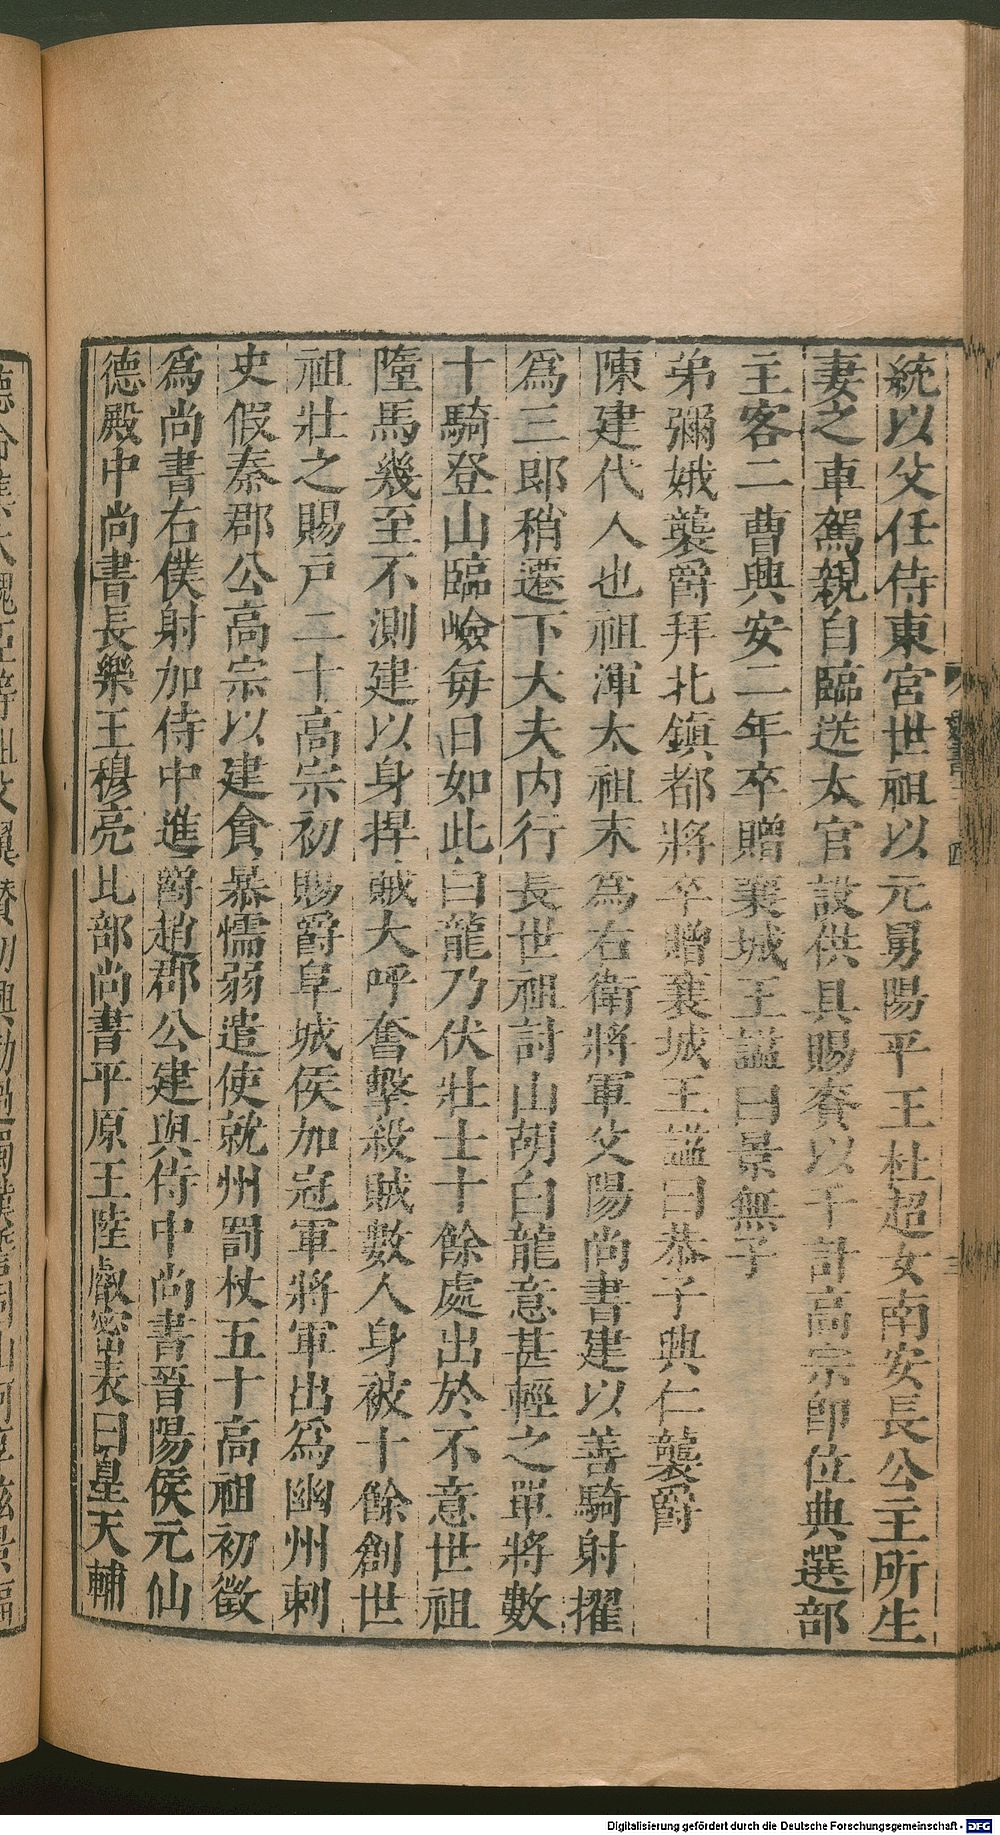 統以父任侍東宮世祖以元舅陽平王杜超女南安長公主所生
妻之車駕親自臨送太官設供具賜賚以千計高宗即位典選部
主客二曹興安二年卒贈襄城王諡曰景無子
弟彌娥襲爵拜北鎮都將卒贈襄城王諡曰恭子興仁襲爵
陳建代人也祖渾太祖末為右衛將軍父陽尚書建以善騎射擢
為三郎稍遷下大夫內行長世祖討山胡白龍意甚輕之單將數
十騎登山臨嶮每日如此白龍乃伏壯士十餘處出於不意世祖
墮馬幾至不測建以身捍賊大呼奮擊殺賊數人身被十餘創世
祖壯之賜戶二十高宗初賜爵阜城侯加冠軍將軍出為幽州刺
史假秦郡公高宗以建貪暴懦弱遣使就州罰杖五十高祖初徵
為尚書右僕射加侍中進爵趙郡公建與侍中尚書晉陽侯元仙
德殿中尚書長樂王穆亮比部尚書平原王陸叡密表曰皇天輔
Digitalisierung gefördert durch die Deutsche Forschungsgemeinschaft - DFG